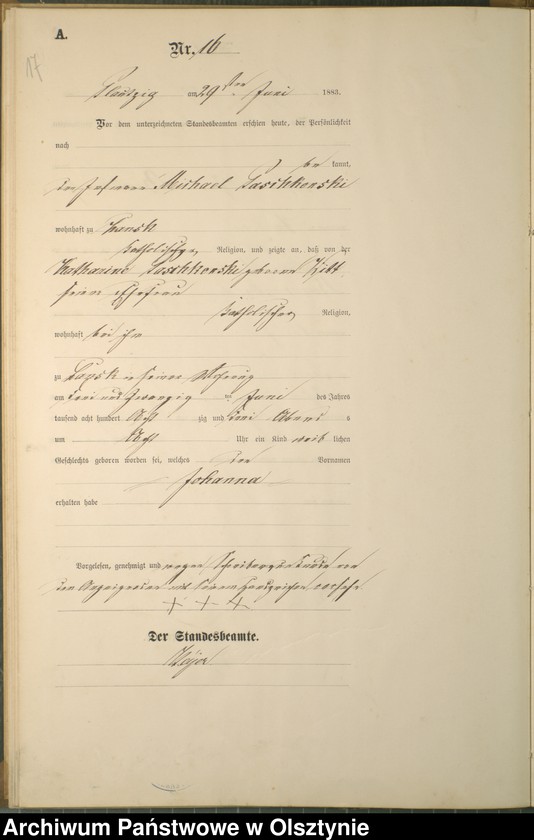 A.
17
Nr. 16
Plautzig am 29 ten Juni 1883.
Vor dem unterzeichneten Standesbeamten erschien heute, der Persönlichkeit
nach
be kannt,
Michael Laschkowski
wohnhaft zu Lansk
katholischer Religion, und zeigte an, daß von der
Katharina Laschkowski geborene Hitt
seiner Ehefrau
katholischer Religion,
wohnhaft bei ihm
zu Lansk in seiner Wohnung
am drei und zwanzig ten Juni des Jahres
tausend acht hundert Acht zig und drei Abends
um Acht Uhr ein Kind weib lichen
Geschlechts geboren worden sei, welches den Vornamen
Johanna
erhalten habe
Vorgelesen, genehmigt und wegen Schreibensunkunde von
dem Anzeigenden mit seinem Handzeichen versehen
+ + +
Der Standesbeamte.
Archiwum Państwowe w Olsztynie